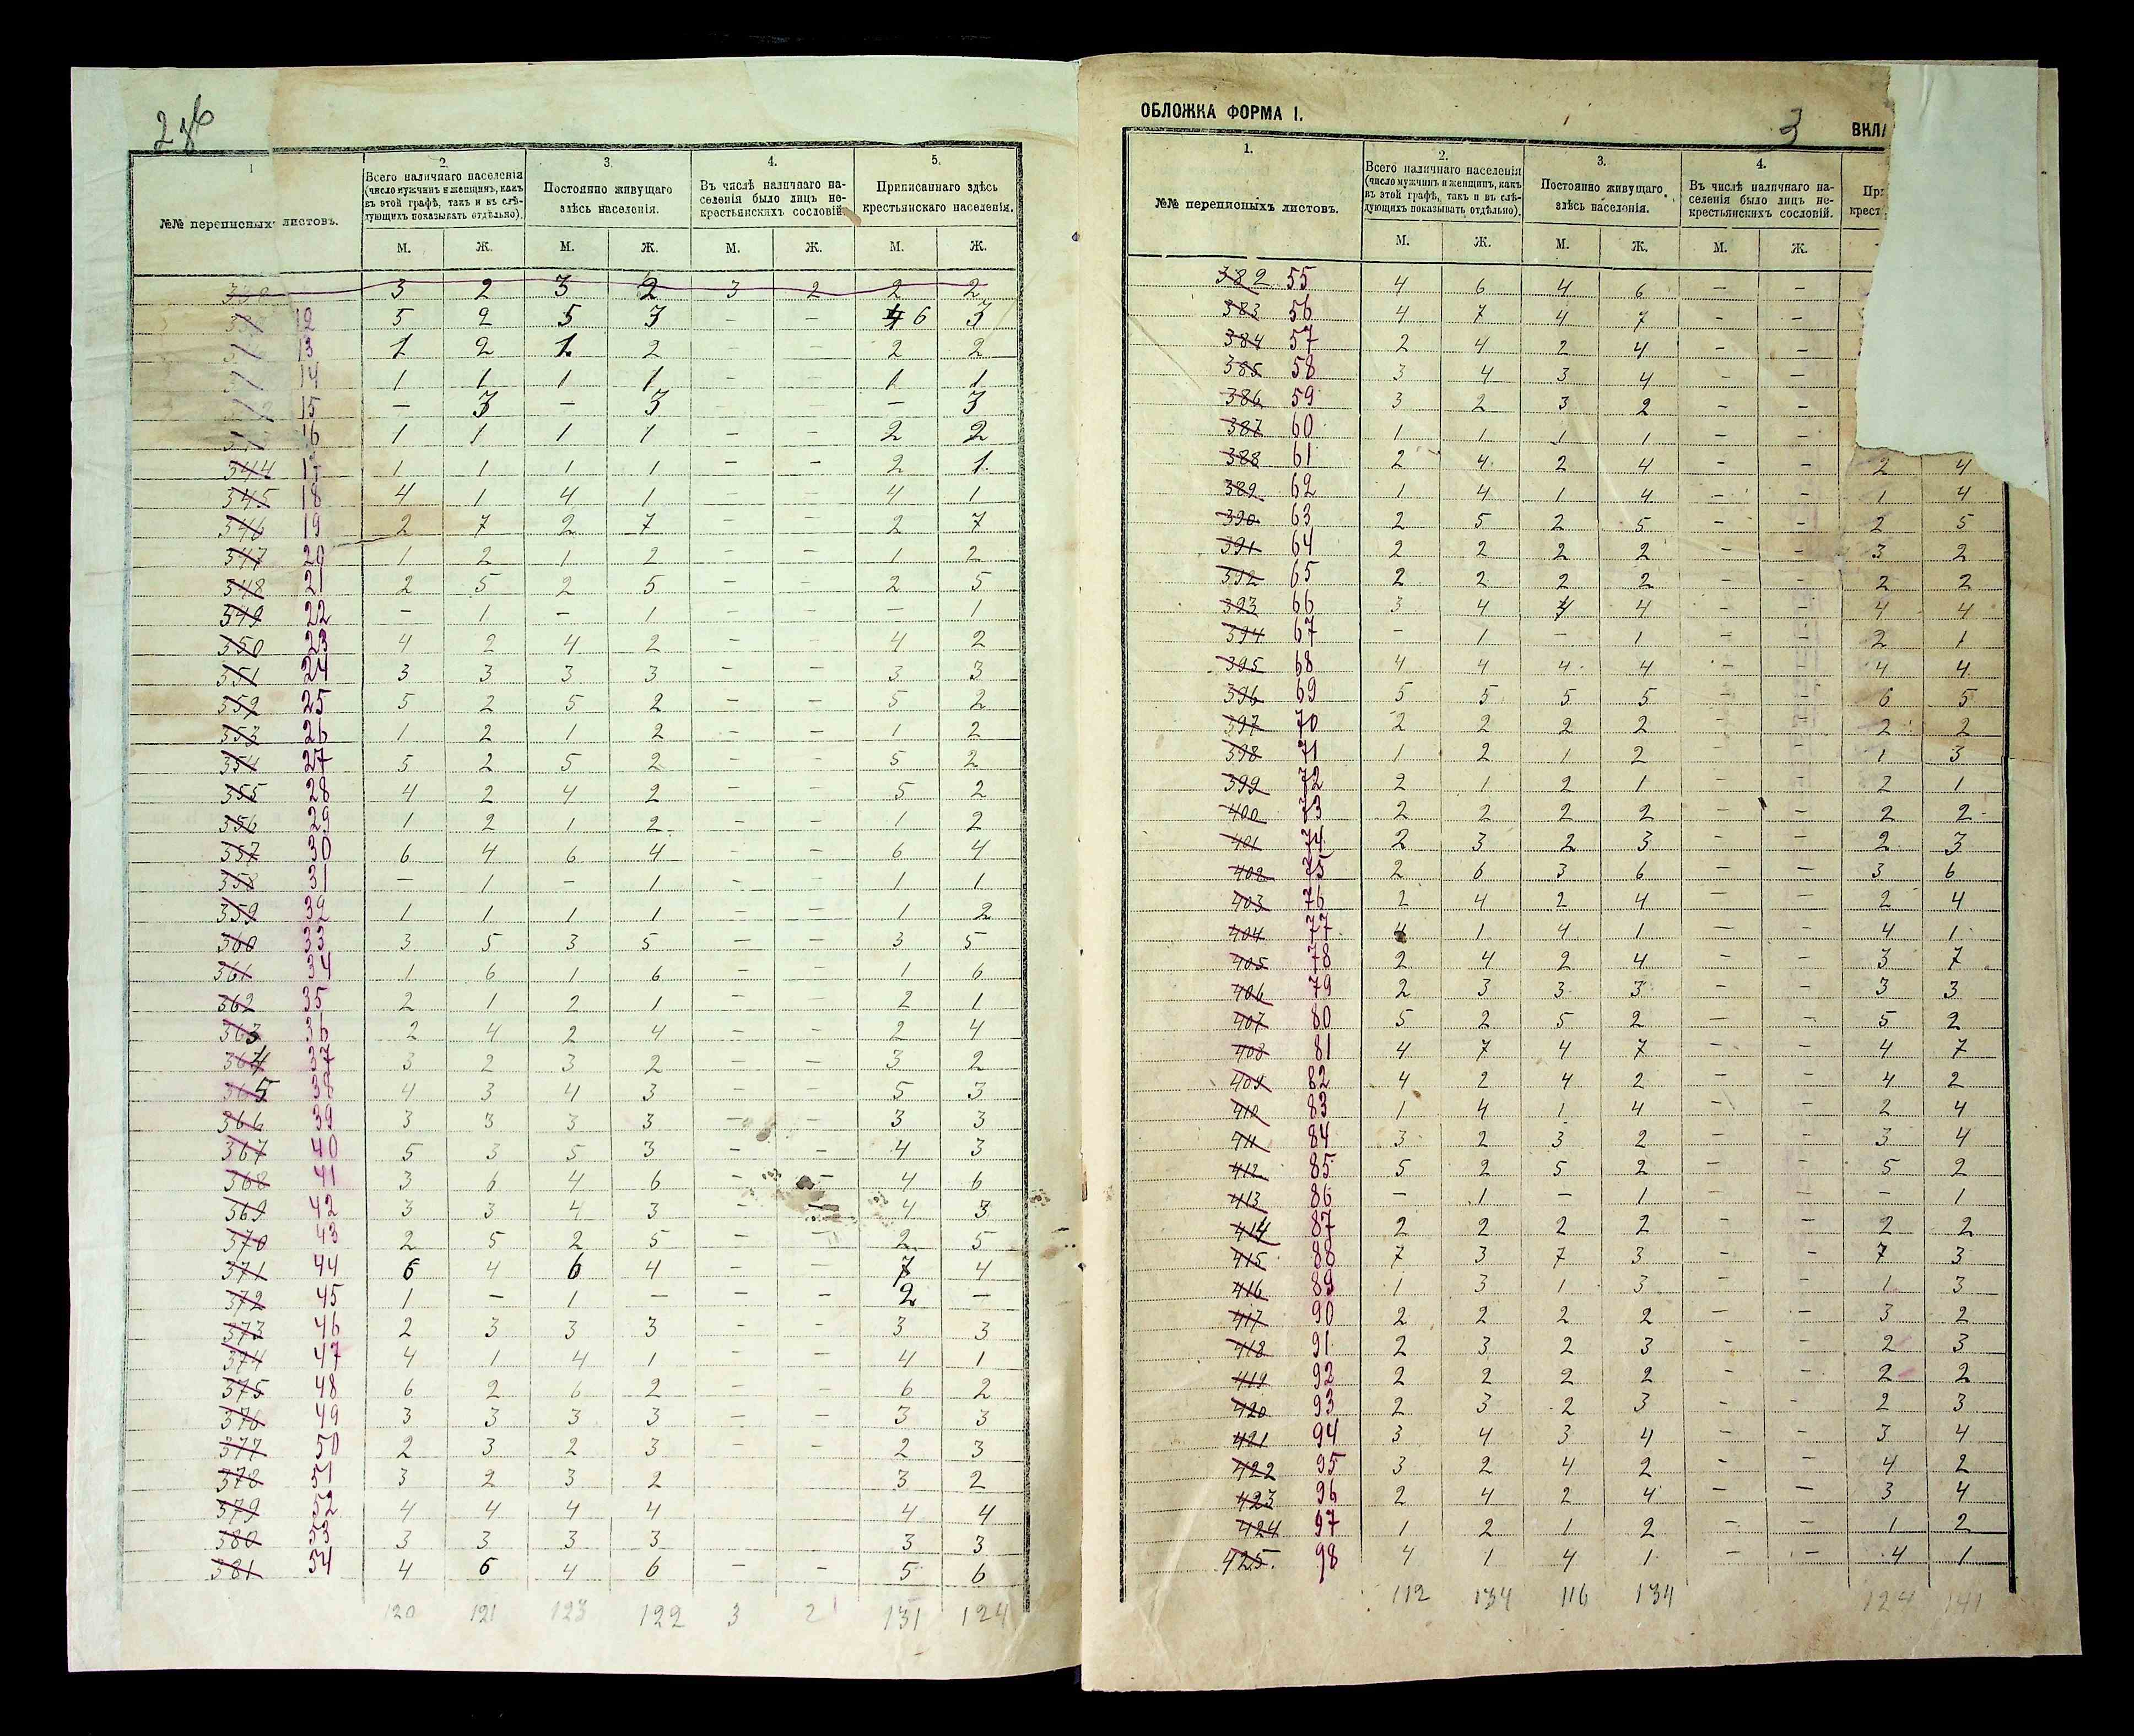 1
2.
3.
4.
5.
№№ переписныхъ листовъ.
Всего наличнаго населенія (число мужчинъ и женщинъ, какъ въ этой графѣ, такъ и въ слѣдующихъ показывать отдѣльно).
Постоянно живущаго здѣсь населенія.
Въ числѣ наличнаго населенія было лицъ некрестьянскихъ сословій.
Приписаннаго здѣсь крестьянскаго населенія.
М. Ж. М. Ж. М. Ж. М. Ж.
3 2 3 2 3 2 2 2
12 5 2 5 3 - - 6 3
13 1 2 1 2 - - 2 2
14 1 1 1 1 - - 1 1
15 - 3 - 3 - 3
16 1 1 1 1 - - 2 2
344 17 1 1 1 1 - - 2 1
345 18 4 1 4 1 - - 4 1
346 19 2 7 2 7 - - 2 7
347 20 1 2 1 2 - - 1 2
348 21 2 5 2 5 - - 2 5
349 22 - 1 - 1 - - - 1
350 23 4 2 4 2 - - 4 2
351 24 3 3 3 3 - - 3 3
352 25 5 2 5 2 - - 5 2
353 26 1 2 1 2 - - 1 2
354 27 5 2 5 2 - - 5 2
355 28 4 2 4 2 - - 5 2
356 29 1 2 1 2 - - 1 2
357 30 6 4 6 4 - - 6 4
358 31 - 1 - 1 - - 1 1
359 32 1 1 1 1 - - 1 2
360 33 3 5 3 5 - - 3 5
361 34 1 6 1 6 - - 1 6
362 35 2 1 2 1 - - 2 1
363 36 2 4 2 4 - - 2 4
364 37 3 2 3 2 - - 3 2
365 38 4 3 4 3 - - 5 3
366 39 3 3 3 3 - - 3 3
367 40 5 3 5 3 - - 4 3
368 41 3 6 4 6 - - 4 6
369 42 3 3 4 3 - - 4 3
370 43 2 5 2 5 - - 2 5
371 44 6 4 6 4 - - 7 4
372 45 1 - 1 - - - 2 -
373 46 2 3 3 3 - - 3 3
374 47 4 1 4 1 - - 4 1
375 48 6 2 6 2 - - 6 2
376 49 3 3 3 3 - - 3 3
377 50 2 3 2 3 - - 2 3
378 51 3 2 3 2 - - 3 2
379 52 4 4 4 4 4 4
380 53 3 3 3 3 3 3
381 54 4 6 4 6 - - 5 6
120 121 123 122 3 2 131 124
ОБЛОЖКА ФОРМА I.
3
1.
2.
3.
4.
№№ переписныхъ листовъ.
Всего наличнаго населенія (число мужчинъ и женщинъ, какъ въ этой графѣ, такъ и въ слѣдующихъ показывать отдѣльно).
Постоянно живущаго здѣсь населенія.
Въ числѣ наличнаго населенія было лицъ некрестьянскихъ сословій.
М. Ж. М. Ж. М. Ж.
382 55 4 6 4 6 - -
383 56 4 7 4 7 - -
384 57 2 4 2 4 - -
385 58 3 4 3 4 - -
386 59 3 2 3 2 - -
387 60 1 1 1 1 - -
388 61 2 4 2 4 - - 2 4
389 62 1 4 1 4 - - 1 4
390 63 2 5 2 5 - - 2 5
391 64 2 2 2 2 - - 3 2
392 65 2 2 2 2 - - 2 2
393 66 3 4 4 4 - - 4 4
394 67 - 1 - 1 - - 2 1
395 68 4 4 4 4 - - 4 4
396 69 5 5 5 5 - - 6 5
397 70 2 2 2 2 - - 2 2
398 71 1 2 1 2 - - 1 3
399 72 2 1 2 1 - - 2 1
400 73 2 2 2 2 - - 2 2
401 74 2 3 2 3 - - 2 3
402 75 2 6 3 6 - - 3 6
403 76 2 4 2 4 - - 2 4
404 77 4 1 4 1 - - 4 1
405 78 2 4 2 4 - - 3 7
406 79 2 3 3 3 - - 3 3
407 80 5 2 5 2 - - 5 2
408 81 4 7 4 7 - - 4 7
409 82 4 2 4 2 - - 4 2
410 83 1 4 1 4 - - 2 4
411 84 3 2 3 2 - - 3 4
412 85 5 2 5 2 - - 5 2
413 86 - 1 - 1 - - - 1
414 87 2 2 2 2 - - 2 2
415 88 7 3 7 3 - - 7 3
416 89 1 3 1 3 - - 1 3
417 90 2 2 2 2 - - 3 2
418 91 2 3 2 3 - - 2 3
419 92 2 2 2 2 - - 2 2
420 93 2 3 2 3 - - 2 3
421 94 3 4 3 4 - - 3 4
422 95 3 2 4 2 - - 4 2
423 96 2 4 2 4 - - 3 4
424 97 1 2 1 2 - - 1 2
425 98 4 1 4 1 - - 4 1
112 134 116 134 124 141